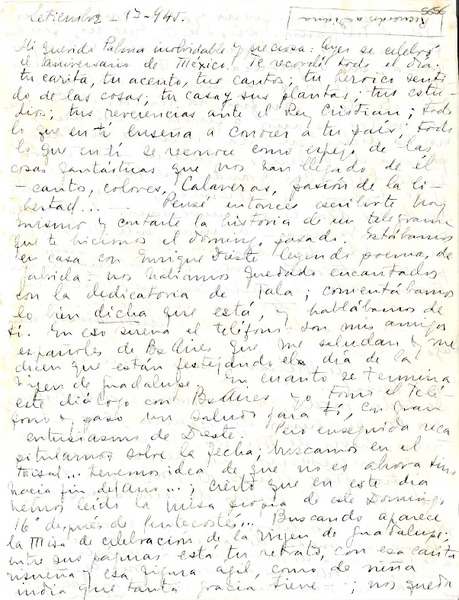 5656
Recuerdo a Diana
Setiembre - 17 - 945.
Mi querida Palma inolvidable y preciosa: ayer se celebró
el aniversario de México. Te recordé todo el día:
tu carita, tu acento, tus cantos; tu heroico senti
do de las cosas; tu casa y sus plantas; tus estu
dios; tus reverencias ante el Rey Cristian; todo
lo que en ti enseña a conocer a tu país; todo
lo que en ti se reconoce como espejo de las
cosas fantásticas que nos han llegado de él
- cantos, colores, Calaveras, pasión de la li-
bertad... Pensé entonces escribirte hoy
mismo y contarte la historia de un telegrama
que te hicimos el domingo pasado. Estábamos
en casa con Enrique Dieste leyendo poemas de
Gabriela: nos habíamos quedado encantados
con la dedicatoria de Tala; comentábamos
lo bien dicha que está, y hablábamos de
ti. En eso suena el teléfono: son mis amigos
españoles de BsAires que me saludan y me
dicen que están festejando el día de la
Virgen de Guadalupe. En cuanto se termina
este diálogo con BsAires yo tomo el telé
fono y paso un saludo para ti, con gran
entusiasmo de Dieste. Pero enseguida reca
pitulamos sobre la fecha; buscamos en el
Misal... tenemos idea de que no es ahora sino
hacia fin de año...; creo que en este día
hemos leído la misa propia de este Domingo,
16° después de Pentecostés... Buscando aparece
la Misa de celebración de la Virgen de Guadalupe;
entre sus páginas está tu retrato, con esa carita
risueña y esa figura ágil, como de niña
india que tanta gracia tiene -; nos queda